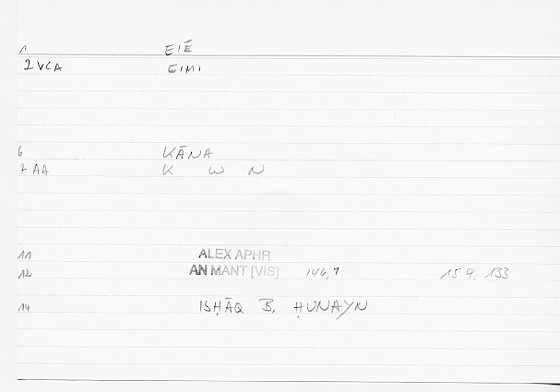 1 EIĒ
2 VCA EIMI
6 KĀNA
7 AA K W N
11 ALEX APHR
12 AN MANT [VIS] 146,7 159. 133
14 ISḤĀQ B. ḤUNAYN